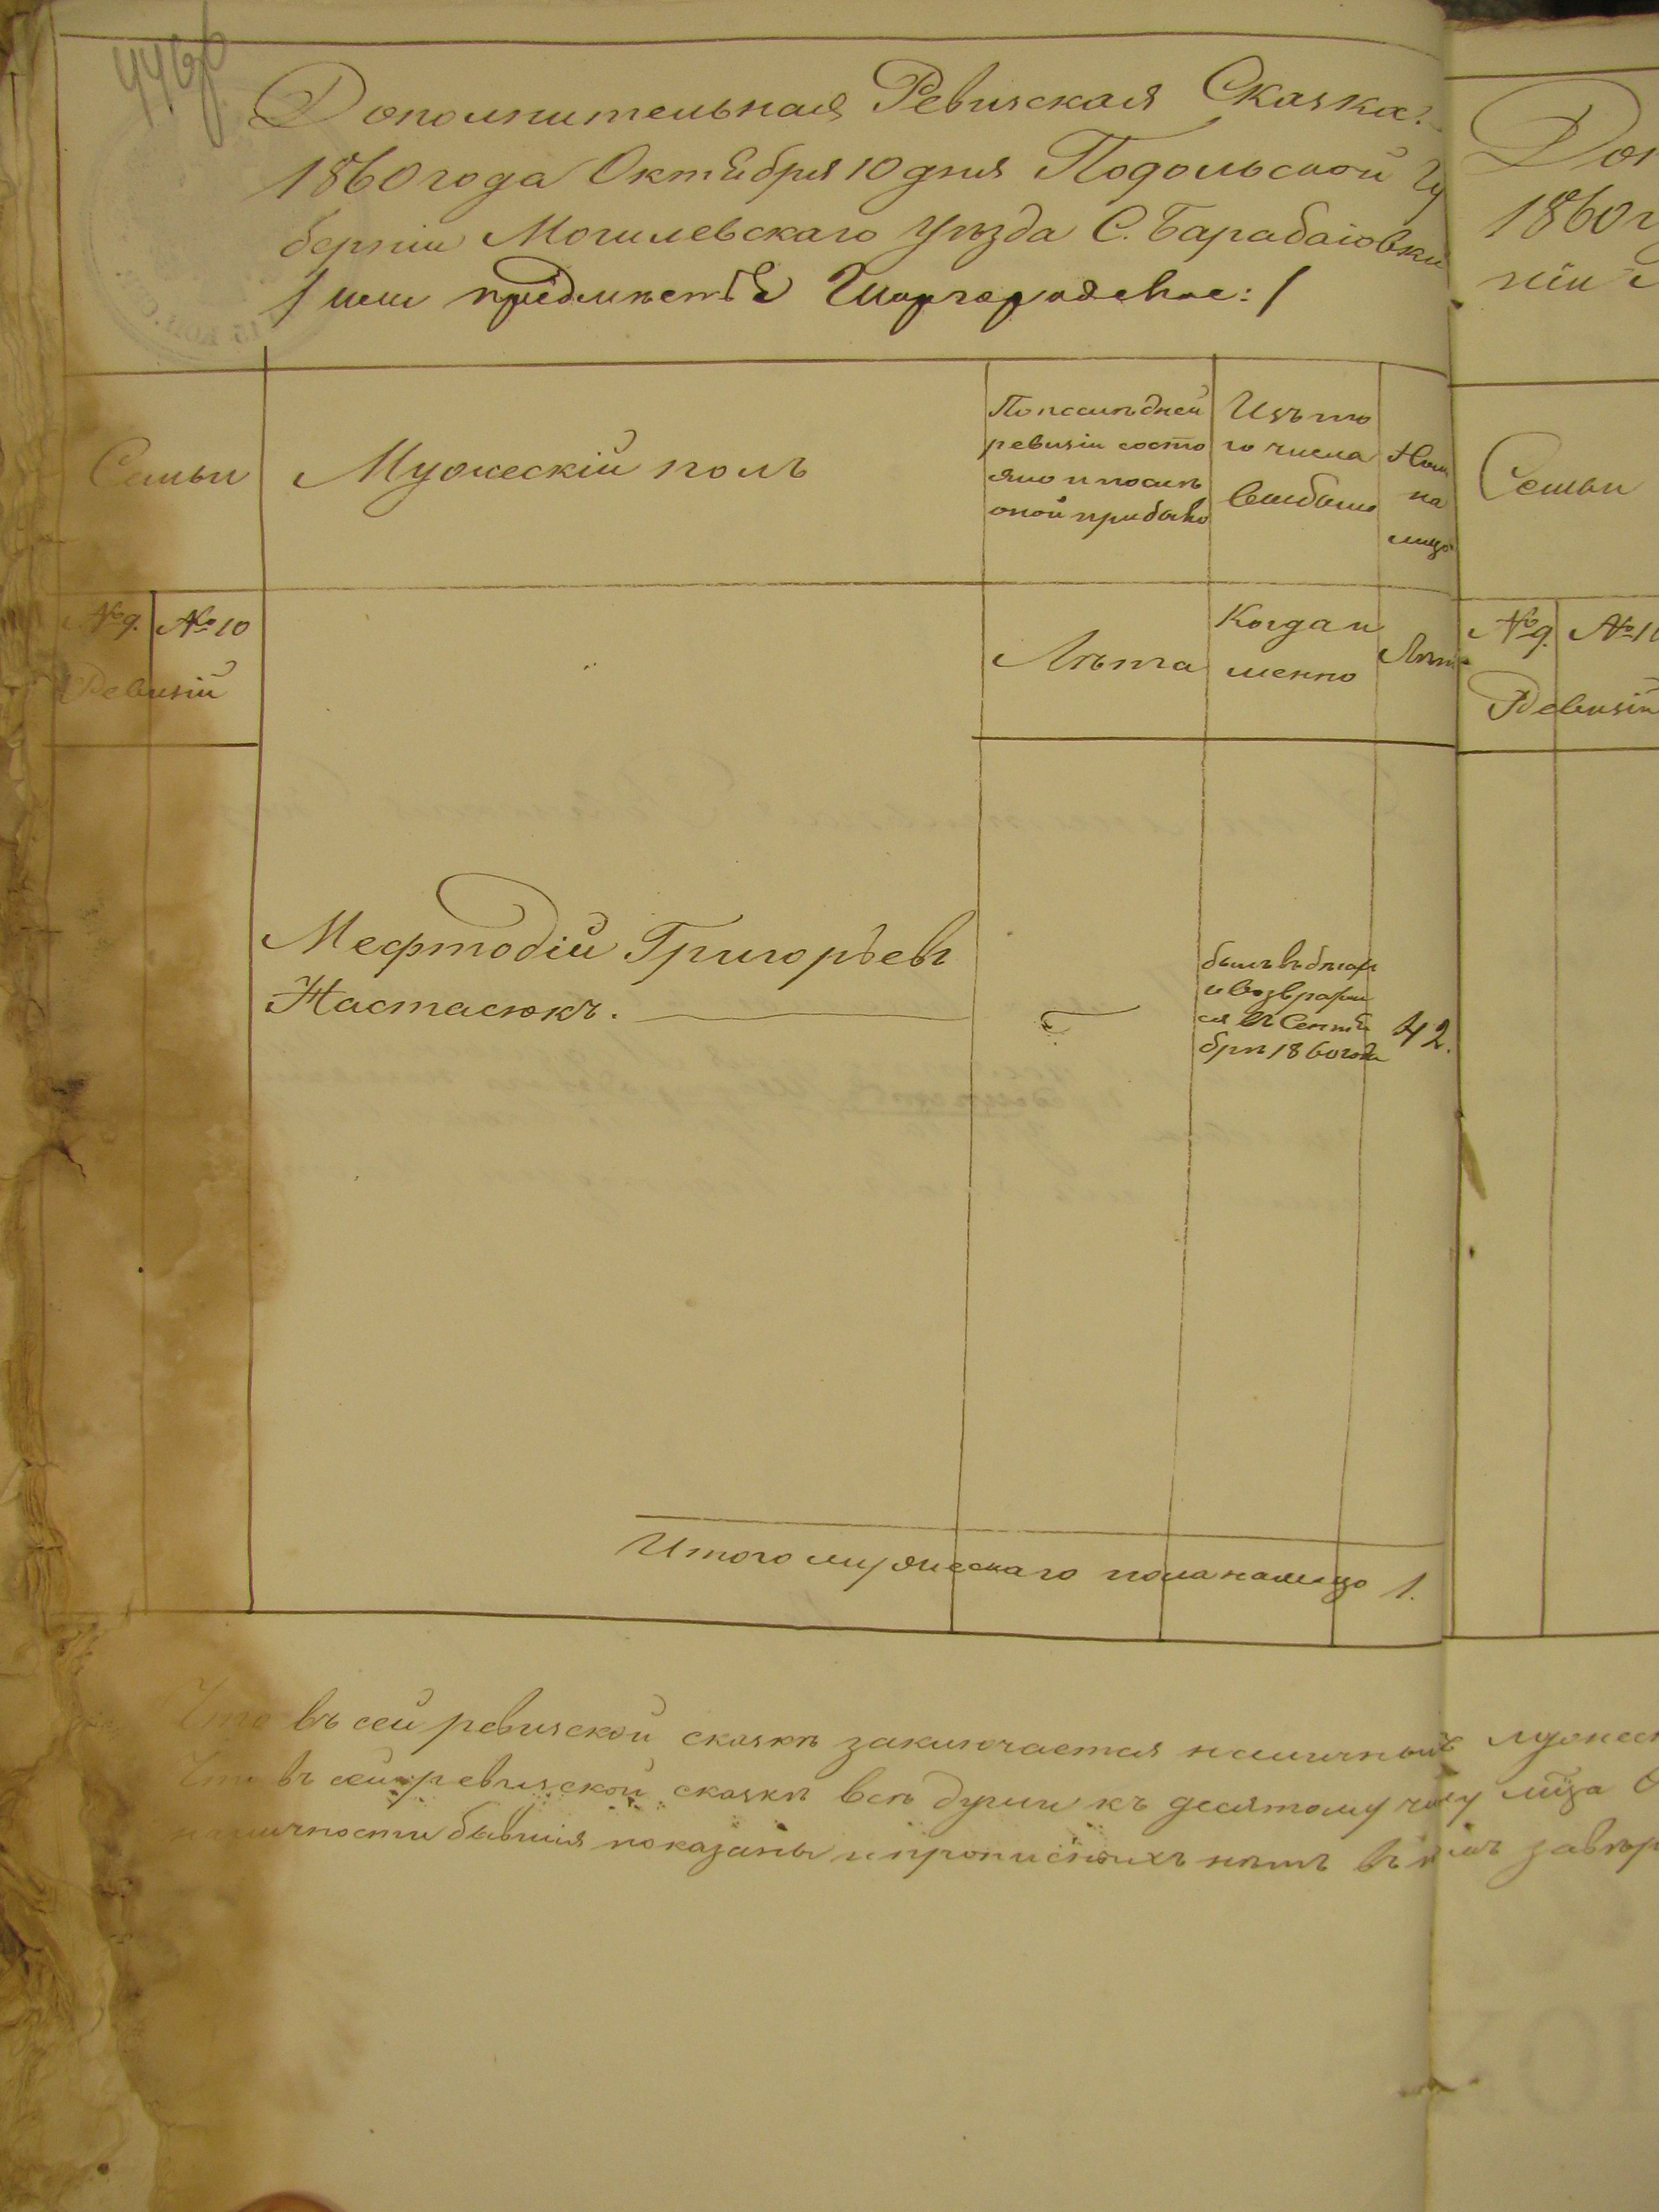 Дополнительная Ревизская Сказка.
1860 года Октября 10 дня Подольской Гу
берніи Могилевскаго уѣзда С. Барабаіовки
/ или предмѣстѣ Шаргородское: /
Семьи
Мужескій полъ
По послѣдней
ревизіи состо
яло и послѣ
оной прибыло
Изъ то
го числа
выбыло
Нынѣ
на
лицо
№ 9. № 10
Ревизій
Лѣта
Когда и
менно
Лѣта
Мефтодій Григорьевъ
Настасюкъ.
былъ въ бѣгах
и возврати
ся въ Сентя
брѣ 1860 года
42.
Итого мужескаго пола налицо 1.
Что въ сей ревизской сказкѣ заключается наличныхъ мужеск
Что въ сей ревизской сказкѣ всѣ души къ десятому числу
наличности бывшія показаны и прописныхъ нѣтъ въ
Доп
1860 г
ніи
Семьи
№ 9. № 10
Ревизій